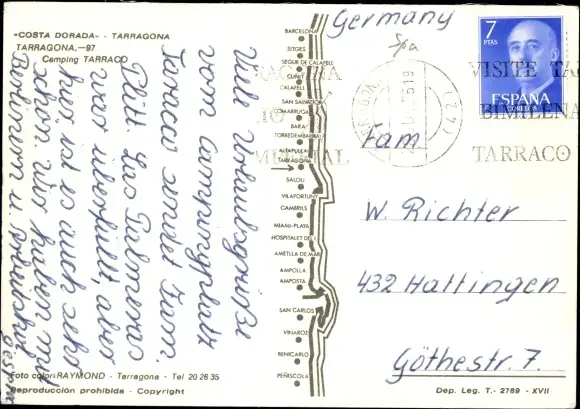 «COSTA DORADA» - TARRAGONA
TARRAGONA.—97
Camping TARRACO
Viele Urlaubsgrüße
vom Campingplatz
Taraco sendet Fam.
Plitt. Las Palmeras
war überfüllt, aber
hier ist es auch sehr
schön. Wir haben mit
Berlinern u.
BARCELONA
SITGES
SEGUR DE CALAFELL
CUNIT
CALAFELL
SAN SALVADOR
COMARRUGA
BARA
TORREDEMBARRA
ALTAFULLA
TARRAGONA
SALOU
VILAFORTUNY
CAMBRILS
MIAMI-PLAYA
HOSPITALET DE L
AMETLLA DE MAR
AMPOLLA
AMPOSTA
SAN CARLOS
VINAROZ
BENICARLO
PEÑISCOLA
Germany
7
PTAS
ESPAÑA
CORREOS
VISITE TA
BIMILENA
TARRACO
Fam
W. Richter
432 Hattingen
Göthestr. 7.
Foto color RAYMOND - Tarragona - Tel 20 26 35
Reproducción prohibida - Copyright
Dep. Leg. T.- 2789 - XVII